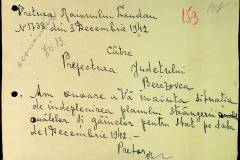 Pretura Raionului Landau
153
No 1738 din 3 Decembrie 1942
Către
Prefectura Județului
Berezovca
Am onoare a Vă înainta situația
de îndeplinirea planului strângerii
ouălelor și găinelor pentru stat pe data
de 1 Decembrie 1942.-
Pretor